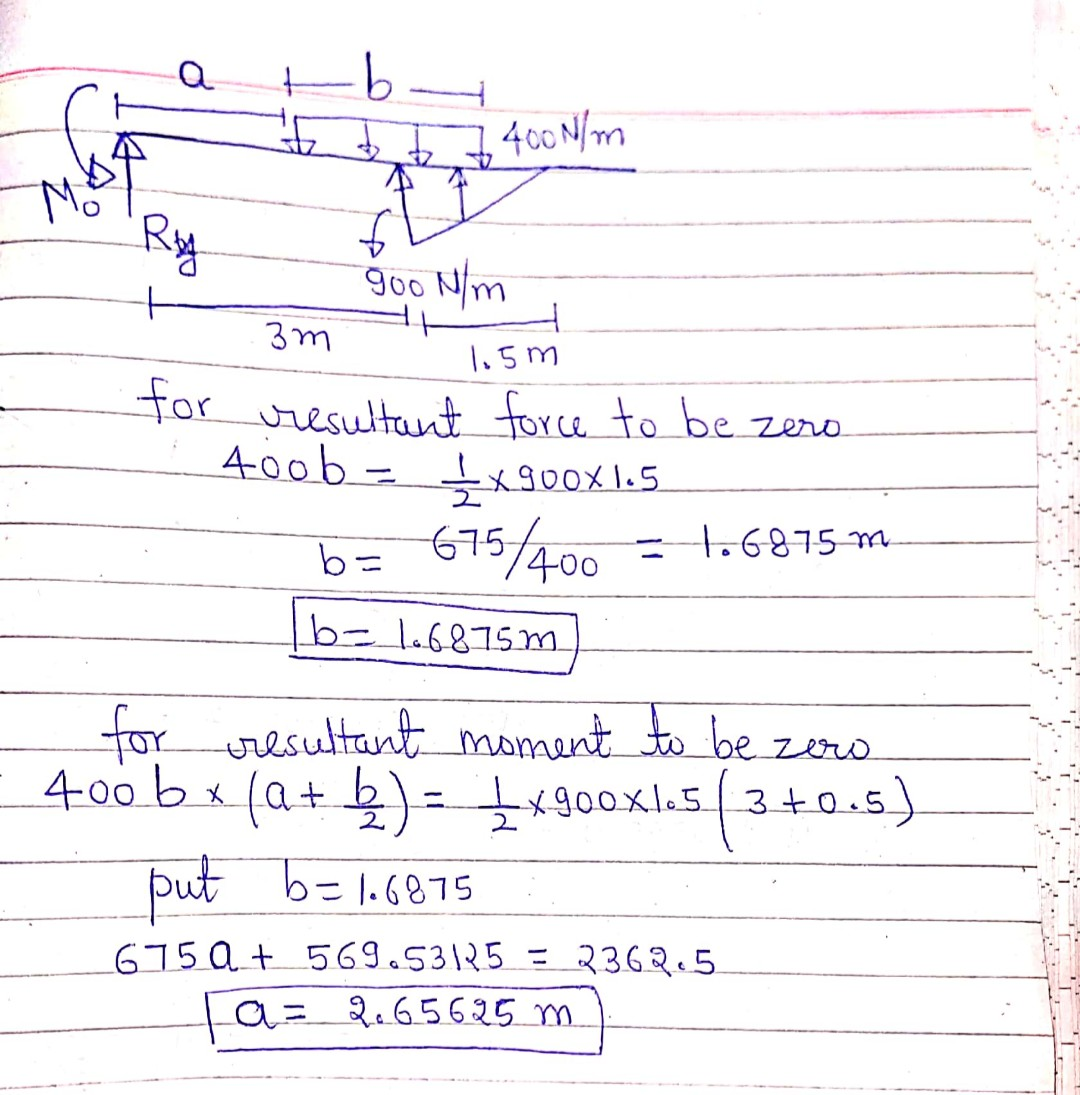 a b
400 N/m
Mo
Ry
900 N/m
3m
1.5m
for resultant force to be zero
400b = 1/2 × 900 × 1.5
b = 675/400 = 1.6875 m
b = 1.6875m
for resultant moment to be zero
400 b × (a + b/2) = 1/2 × 900 × 1.5 (3 + 0.5)
put b = 1.6875
675 a + 569.53125 = 2362.5
a = 2.65625 m